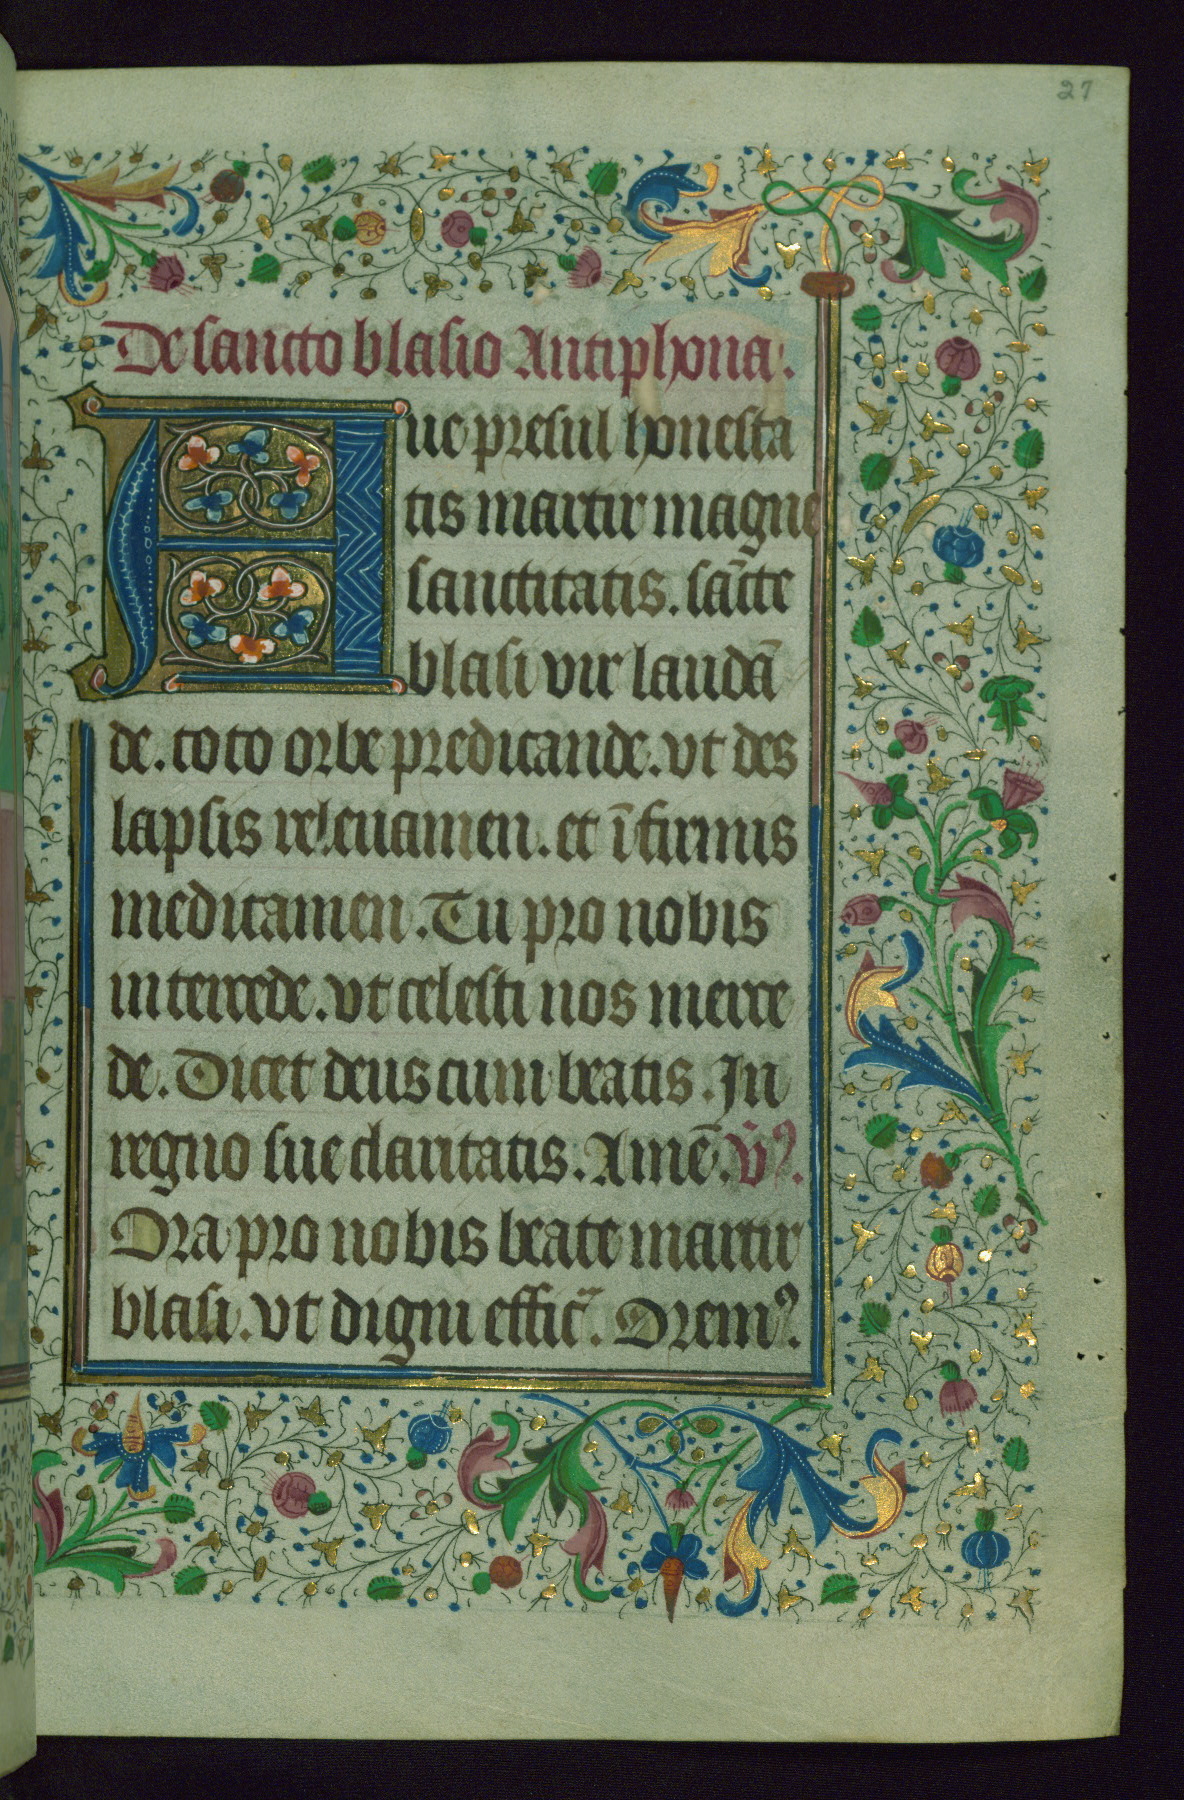 27
De sancto blasio Antiphona.
Aue presul honesta
tis martir magne
sanctitatis. sācte
blasi vir laudā
de. toto orbe predicande. vt des
lapsis releuamen. et īfirmis
medicamen. Tu pro nobis
intercede. vt celesti nos merce
de. Dicet deus cum beatis. In
regno sue claritatis. Amē. v̄ꝰ.
Ora pro nobis beate martir
blasi. vt digni effic̄. Oremꝰ.